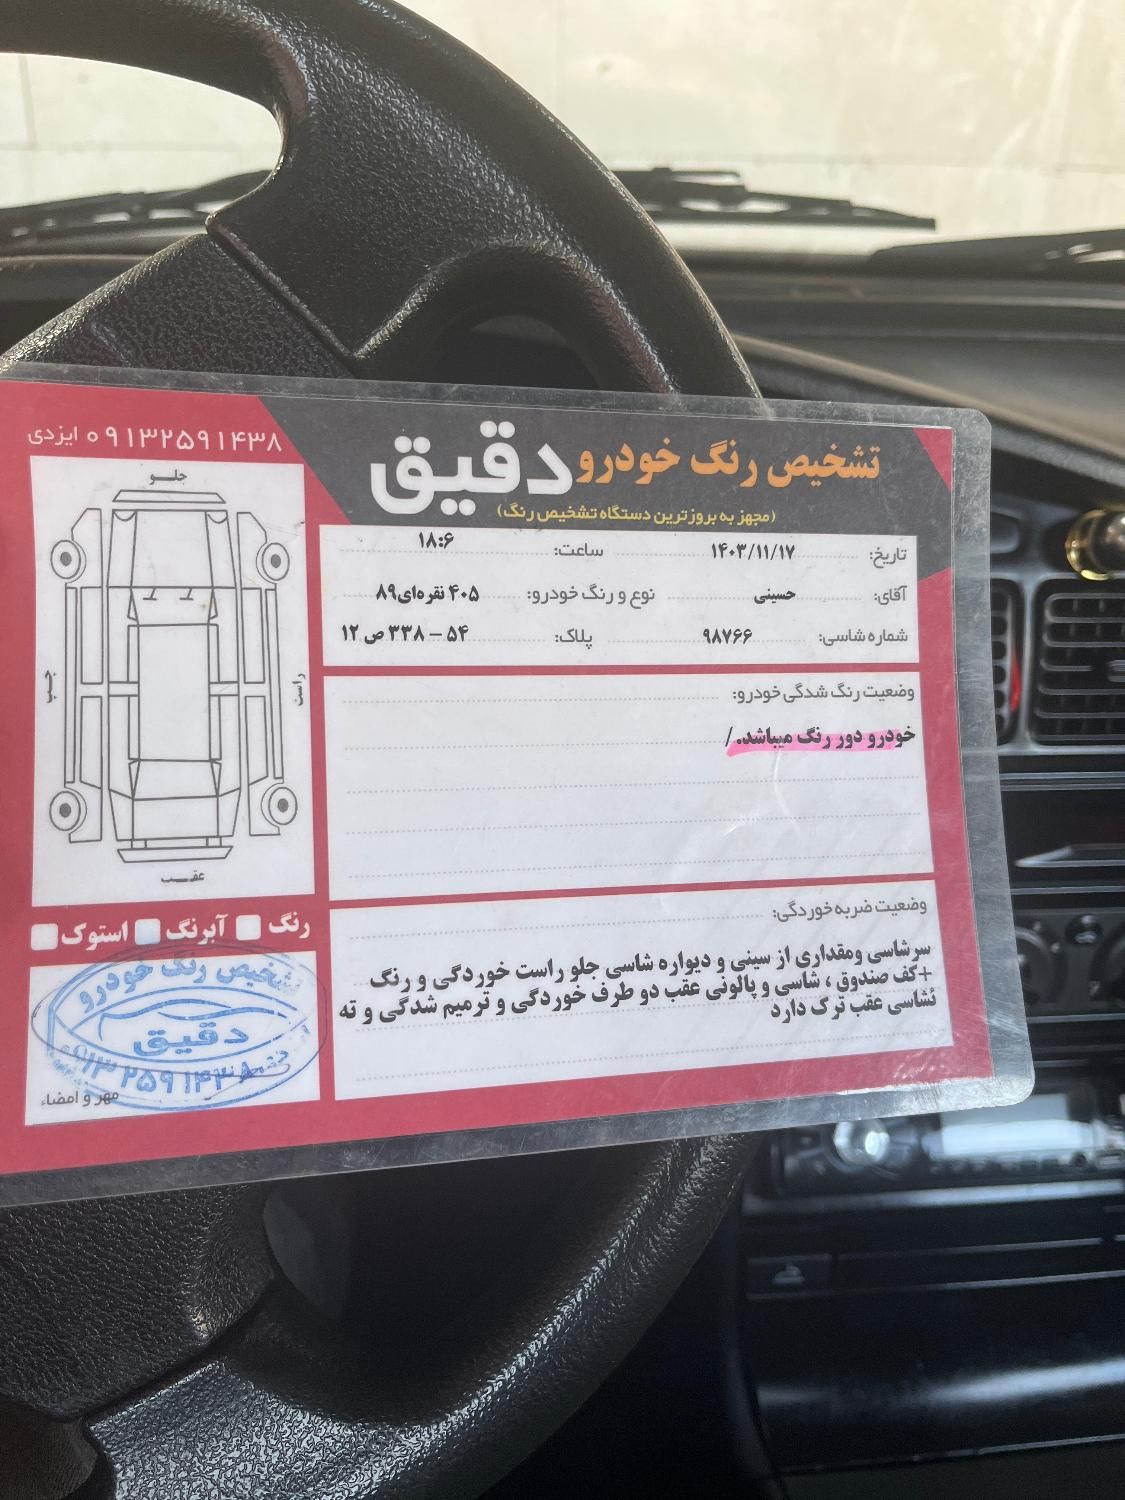 تشخیص رنگ خودرو دقیق
(مجهز به بروزترین دستگاه تشخیص رنگ)
۰۹۱۳۲۵۹۱۴۳۸ ایزدی
تاریخ: ۱۴۰۳/۱۱/۱۷ ساعت: ۱۸:۶
آقای: حسینی نوع و رنگ خودرو: ۴۰۵ نقره‌ای۸۹
شماره شاسی: ۹۸۷۶۶ پلاک: ۵۴ – ۳۳۸ ص ۱۲
وضعیت رنگ شدگی خودرو:
خودرو دور رنگ میباشد./
وضعیت ضربه خوردگی:
سرشاسی ومقداری از سینی و دیواره شاسی جلو راست خوردگی و رنگ
+کف صندوق ، شاسی و پالونی عقب دو طرف خوردگی و ترمیم شدگی و ته
شاسی عقب ترک دارد
جلــو
چپ
راست
عقــب
رنگ آبرنگ استوک
تشخیص رنگ خودرو
دقیق
۰۹۱۳۲۵۹۱۴۳۸
مهر و امضاء